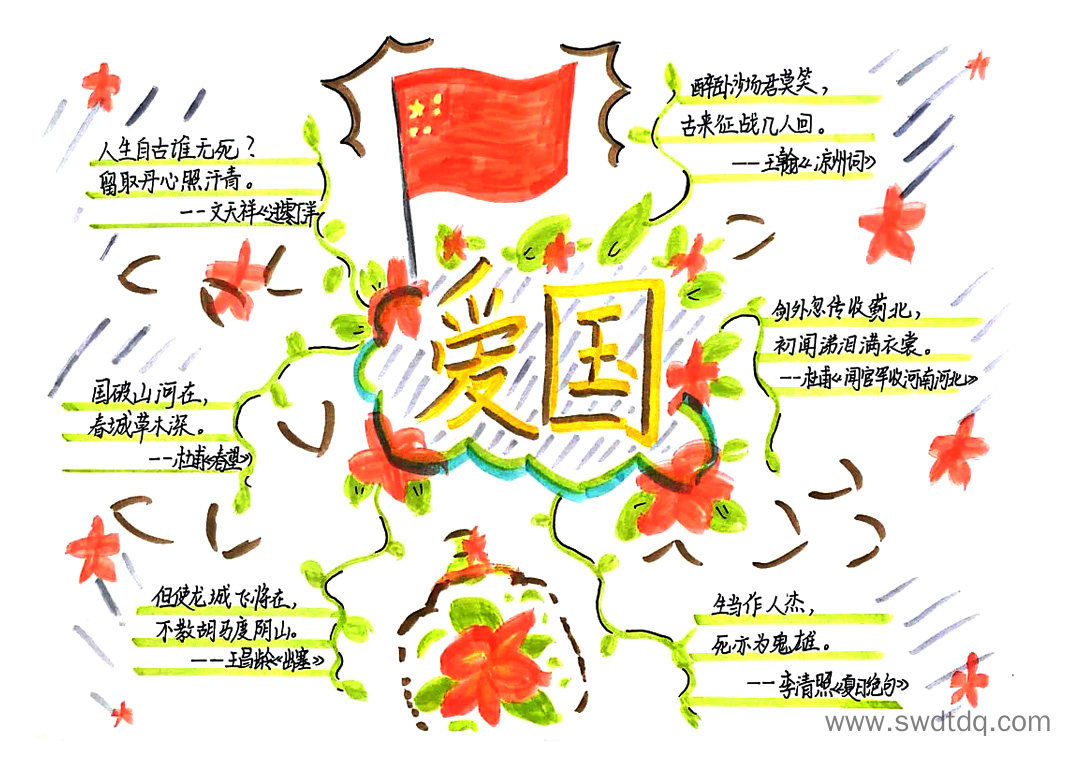 人生自古谁无死？
留取丹心照汗青。
——文天祥《过零丁洋
醉卧沙场君莫笑，
古来征战几人回。
——王翰《凉州词》
爱国
剑外忽传收蓟北，
初闻涕泪满衣裳。
——杜甫《闻官军收河南河北》
国破山河在，
春城草木深。
——杜甫《春望》
但使龙城飞将在，
不教胡马度阴山。
——王昌龄《出塞》
生当作人杰，
死亦为鬼雄。
——李清照《夏日绝句》
www.swdtdq.com